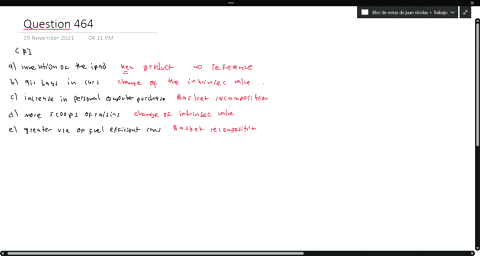 Bloc de notas de juan nicolas > Trabajo
Question 464
19 November 2021 04:31 PM
CPI
a) invention of the ipad new product no reference
b) air bags in cars change of the intrinsec value
c) increase in personal computer purchase Basket recomposition
d) more scoops of raisins change of intrinsec value
e) greater use of fuel efficient cars Basket recomposition